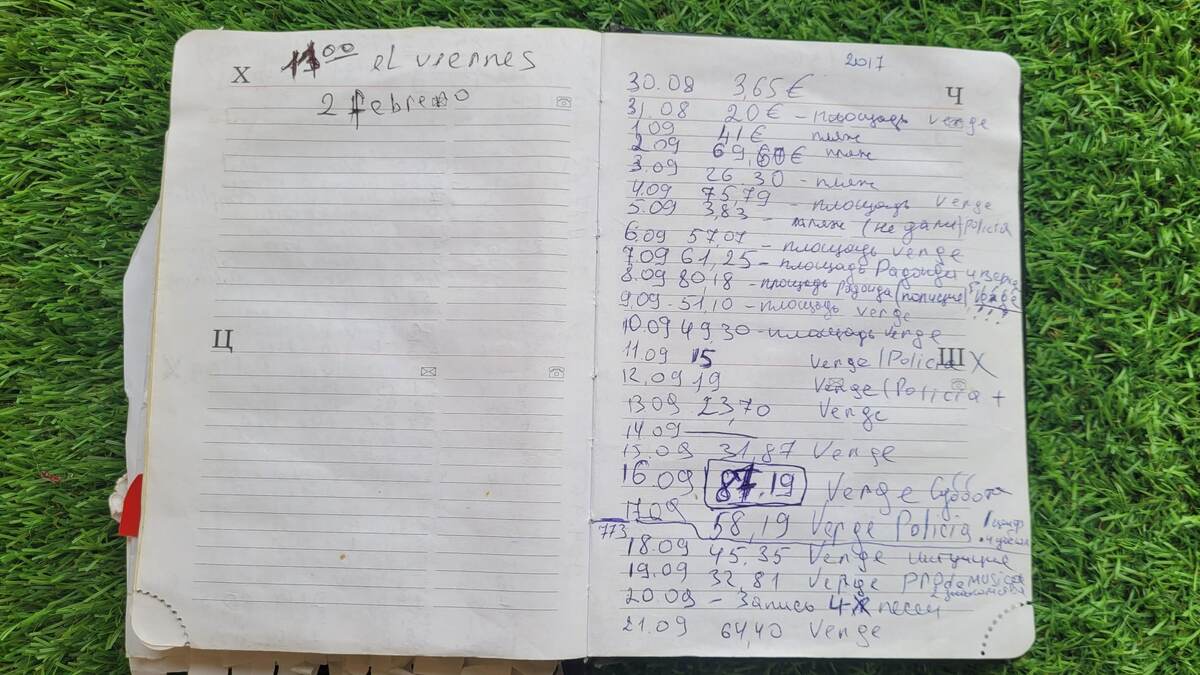 Х
11⁰⁰ el viernes
2 febrero
Ц
2017
Ч
30.08 3,65 €
31.08 20 € - площадь venge
1.09 41 € пляж
2.09 69, € пляж
3.09 26,30 - пляж
4.09 75,79 - площадь Verge
5.09 3,83 - пляж (не дали) policia
6.09 57,07 - площадь Venge
7.09 61,25 - площадь Радонда и
8.09 80,18 - площадь радонда (полиция)
9.09 - 51,10 - площадь verge
10.09 49,30 - площадь verge
Ш
11.09 15 Venge / Policia X
12.09 19 Venge (Policia +
13.09 23,70 Venge
14.09 —
15.09 31,87 Venge
16.09 87,19 Verge Суббота
17.09 58,19 Verge Policia
773
18.09 45,35 Venge
19.09 32,81 Verge
20.09 - Запись 4-х песен
21.09 64,40 Venge